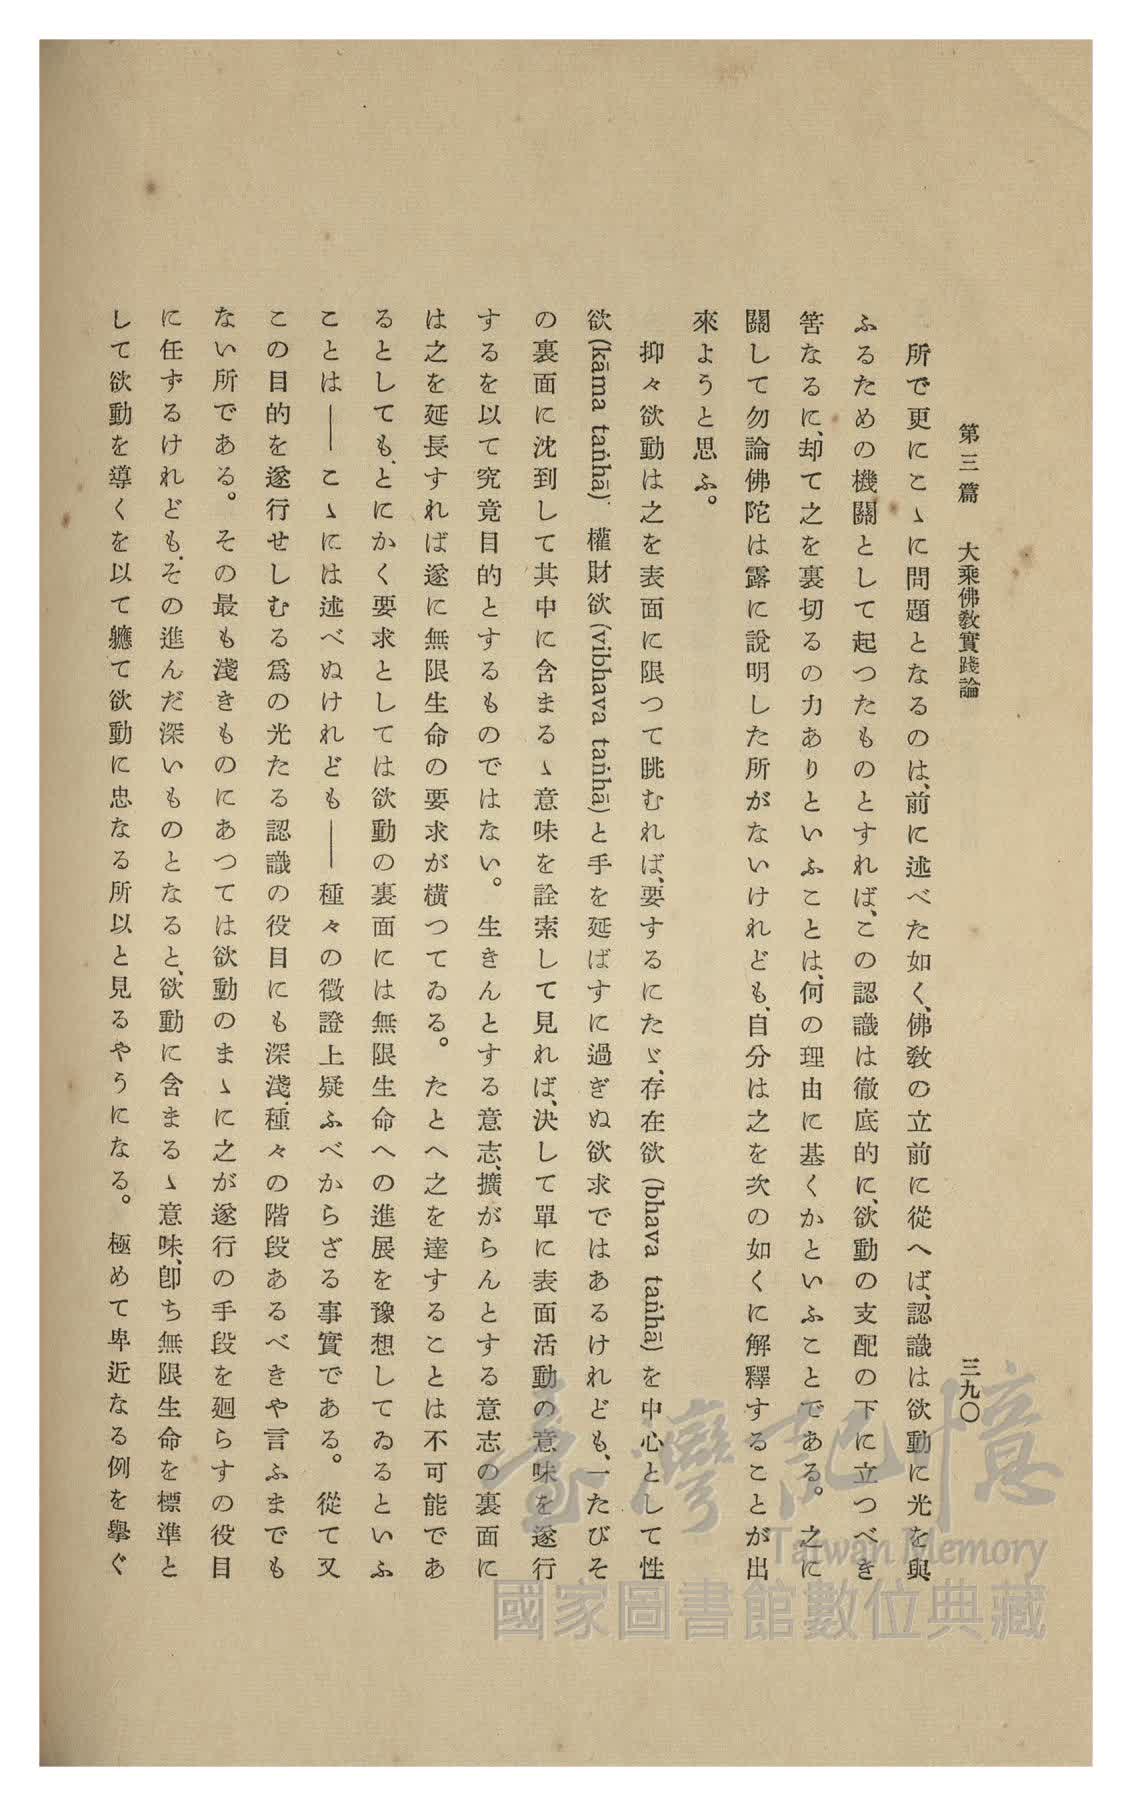 第三篇　大乘佛教實踐論　三九〇
所で更にこゝに問題となるのは、前に述べた如く、佛教の立前に從へば、認識は欲動に光を與
ふるための機關として起つたものとすれば、この認識は徹底的に、欲動の支配の下に立つべき
筈なるに、却て之を裏切るの力ありといふことは、何の理由に基くかといふことである。之に
關して勿論佛陀は露に說明した所がないけれども、自分は之を次の如くに解釋することが出
來ようと思ふ。
抑々欲動は之を表面に限つて眺むれば、要するにたゞ、存在欲 (bhava taṅhā) を中心として性
欲 (kāma taṅhā)、權財欲 (vibhava taṅhā) と手を延ばすに過ぎぬ欲求ではあるけれども、一たびそ
の裏面に沈到して其中に含まるゝ意味を詮索して見れば、決して單に表面活動の意味を遂行
するを以て究竟目的とするものではない。生きんとする意志、擴がらんとする意志の裏面に
は之を延長すれば遂に無限生命の要求が橫つてゐる。たとへ之を達することは不可能であ
るとしても、とにかく要求としては欲動の裏面には無限生命への進展を豫想してゐるといふ
ことは――こゝには述べぬけれども――種々の徵證上疑ふべからざる事實である。從て又
この目的を遂行せしむる爲の光たる認識の役目にも深淺、種々の階段あるべきや言ふまでも
ない所である。その最も淺きものにあつては欲動のまゝに之が遂行の手段を廻らすの役目
に任ずるけれども、その進んだ深いものとなると、欲動に含まるゝ意味、卽ち無限生命を標準と
して欲動を導くを以て軈て欲動に忠なる所以と見るやうになる。極めて卑近なる例を擧ぐ
臺灣記憶
Taiwan Memory
國家圖書館數位典藏